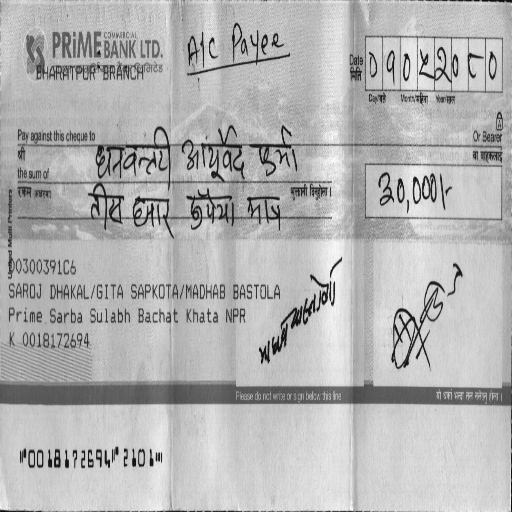 PRiME COMMERCIAL BANK LTD.
BHARATPUR BRANCH
A/C Payee
Date
मिति
09052080
Day/गते Month/महिना Year/साल
Pay against this cheque to
Or Bearer
श्री धनवन्तरी आयुर्वेद फर्मा वा वाहकलाई
the sum of
रकम अक्षरमा तीस हजार रुपैया मात्र भुक्तानी दिनुहोला ।
30,000/-
United Multi Printers
00300391C6
SAROJ DHAKAL/GITA SAPKOTA/MADHAB BASTOLA
Prime Sarba Sulabh Bachat Khata NPR
K 0018172694
Please do not write or sign below this line
⑈0018172694⑈ 2101⑈